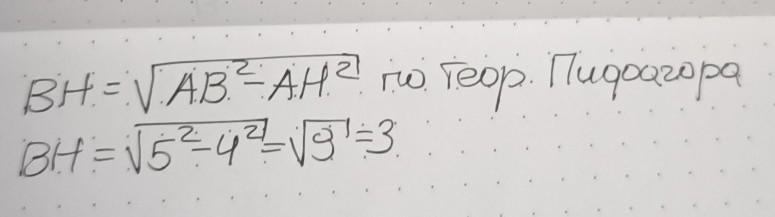 BH = √AB² - AH² по теор. Пифагора
BH = √5² - 4² = √9 = 3